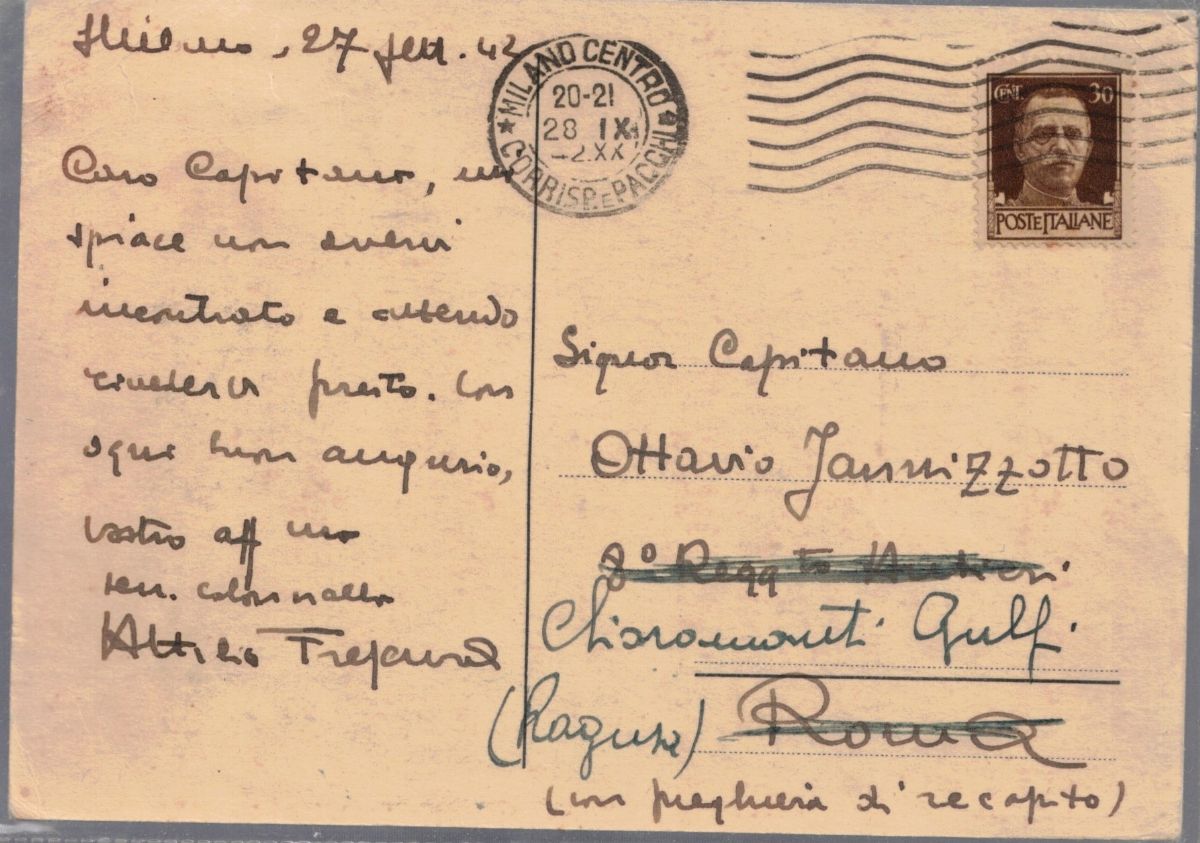 Milano, 27 sett. 42
Caro Capitano, mi
spiace non avervi
incontrato e attendo
rivedervi presto. Con
ogni buon augurio,
vostro aff mo
ten. colonnello
Attilio
MILANO CENTRO
20-21
28 IX
42.XX
CORRISP. E PACCHI
CENT. 30
POSTE ITALIANE
Signor Capitano
Ottavio Jannizzotto
8° Regg to Artieri
Chiaramonti Gulfi
(Ragusa) Roma
(con preghiera di recapito)